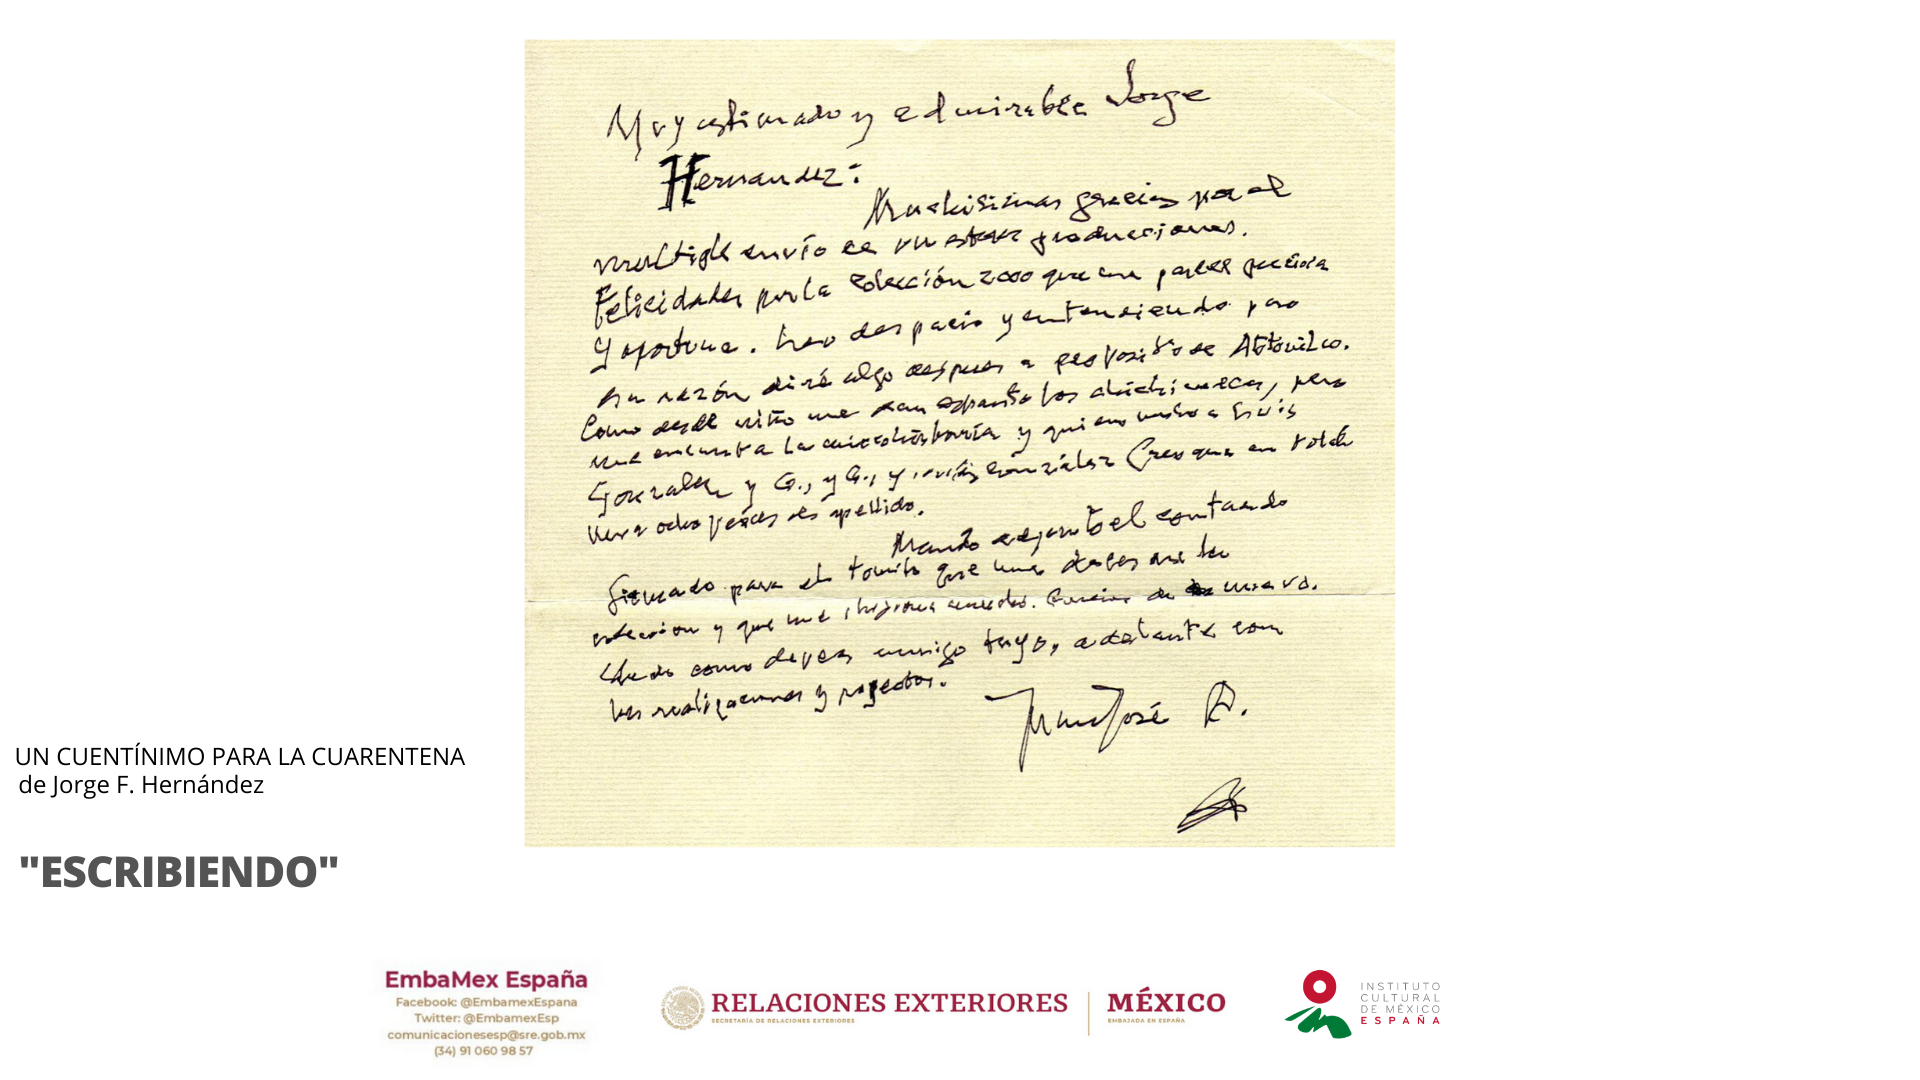 Muy estimado y admirable Jorge
Hernández:
Muchísimas gracias por el
multiple envío de vuestras producciones.
Felicidades por la Colección 2000 que me parece preciosa
y oportuna. Leo despacio y entendiendo pero
en razón diré algo después a propósito de Atotonilco.
Como desde niño me dan espanto los chichimecas, pero
me encanta la microhistoria y quiero mucho a Luis
González y G., y G., y González Creo que en total
lleva ocho veces ese apellido.
Mando adjunto el contrato
firmado para el tomito que me
colección y que me de nuevo.
Quedo como de veras amigo tuyo, adelante con
las realizaciones y proyectos.
Juan José A.
UN CUENTÍNIMO PARA LA CUARENTENA
de Jorge F. Hernández
"ESCRIBIENDO"
EmbaMex España
Facebook: @EmbamexEspana
Twitter: @EmbamexEsp
comunicacionesesp@sre.gob.mx
(34) 91 060 98 57
RELACIONES EXTERIORES
SECRETARÍA DE RELACIONES EXTERIORES
MÉXICO
EMBAJADA EN ESPAÑA
INSTITUTO
CULTURAL
DE MÉXICO
ESPAÑA